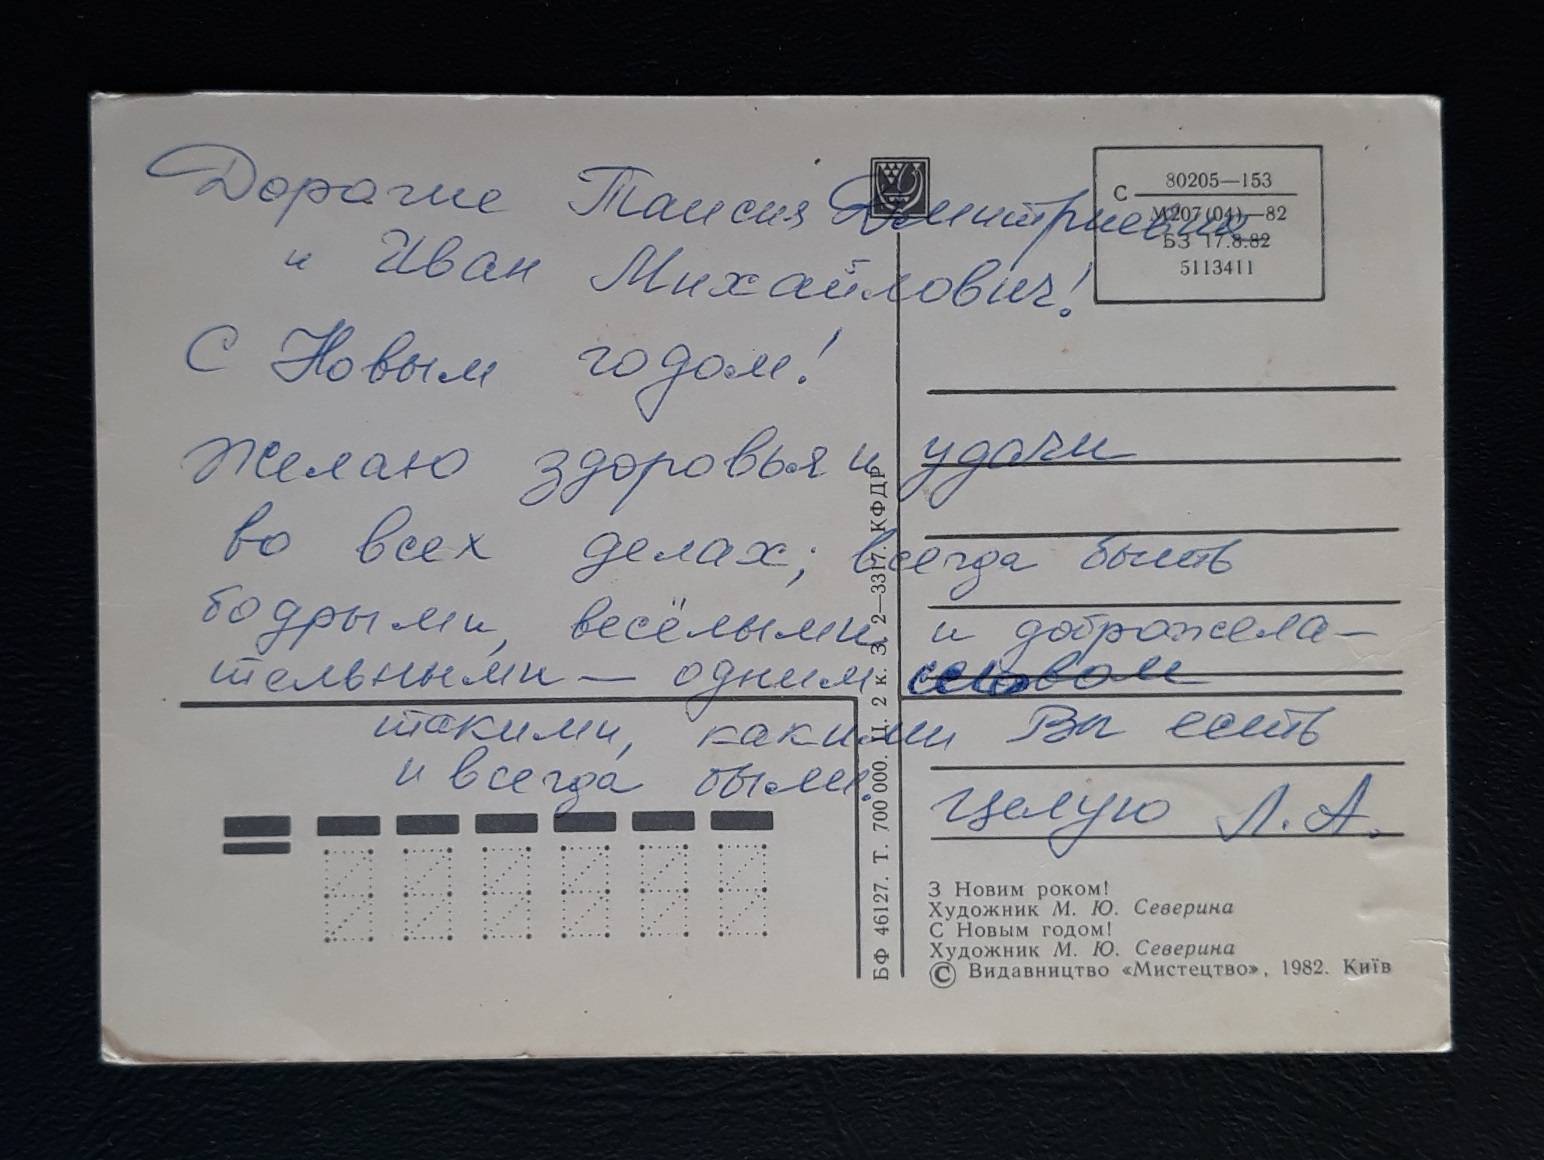 Дорогие Таисия Дмитриевна
и Иван Михайлович!
С Новым годом!
Желаю здоровья и удачи
во всех делах; всегда быть
бодрыми, весёлыми и доброжела-
тельными — одним словом
такими, какими Вы есть
и всегда были.
Целую Л. А.
С 80205—153
М207(04)—82
БЗ 17.8.82
5113411
БФ 46127. Т. 700 000. Ц. 2 к. З. 2—3317. КФДР
З Новим роком!
Художник М. Ю. Северина
С Новым годом!
Художник М. Ю. Северина
© Видавництво «Мистецтво», 1982. Київ